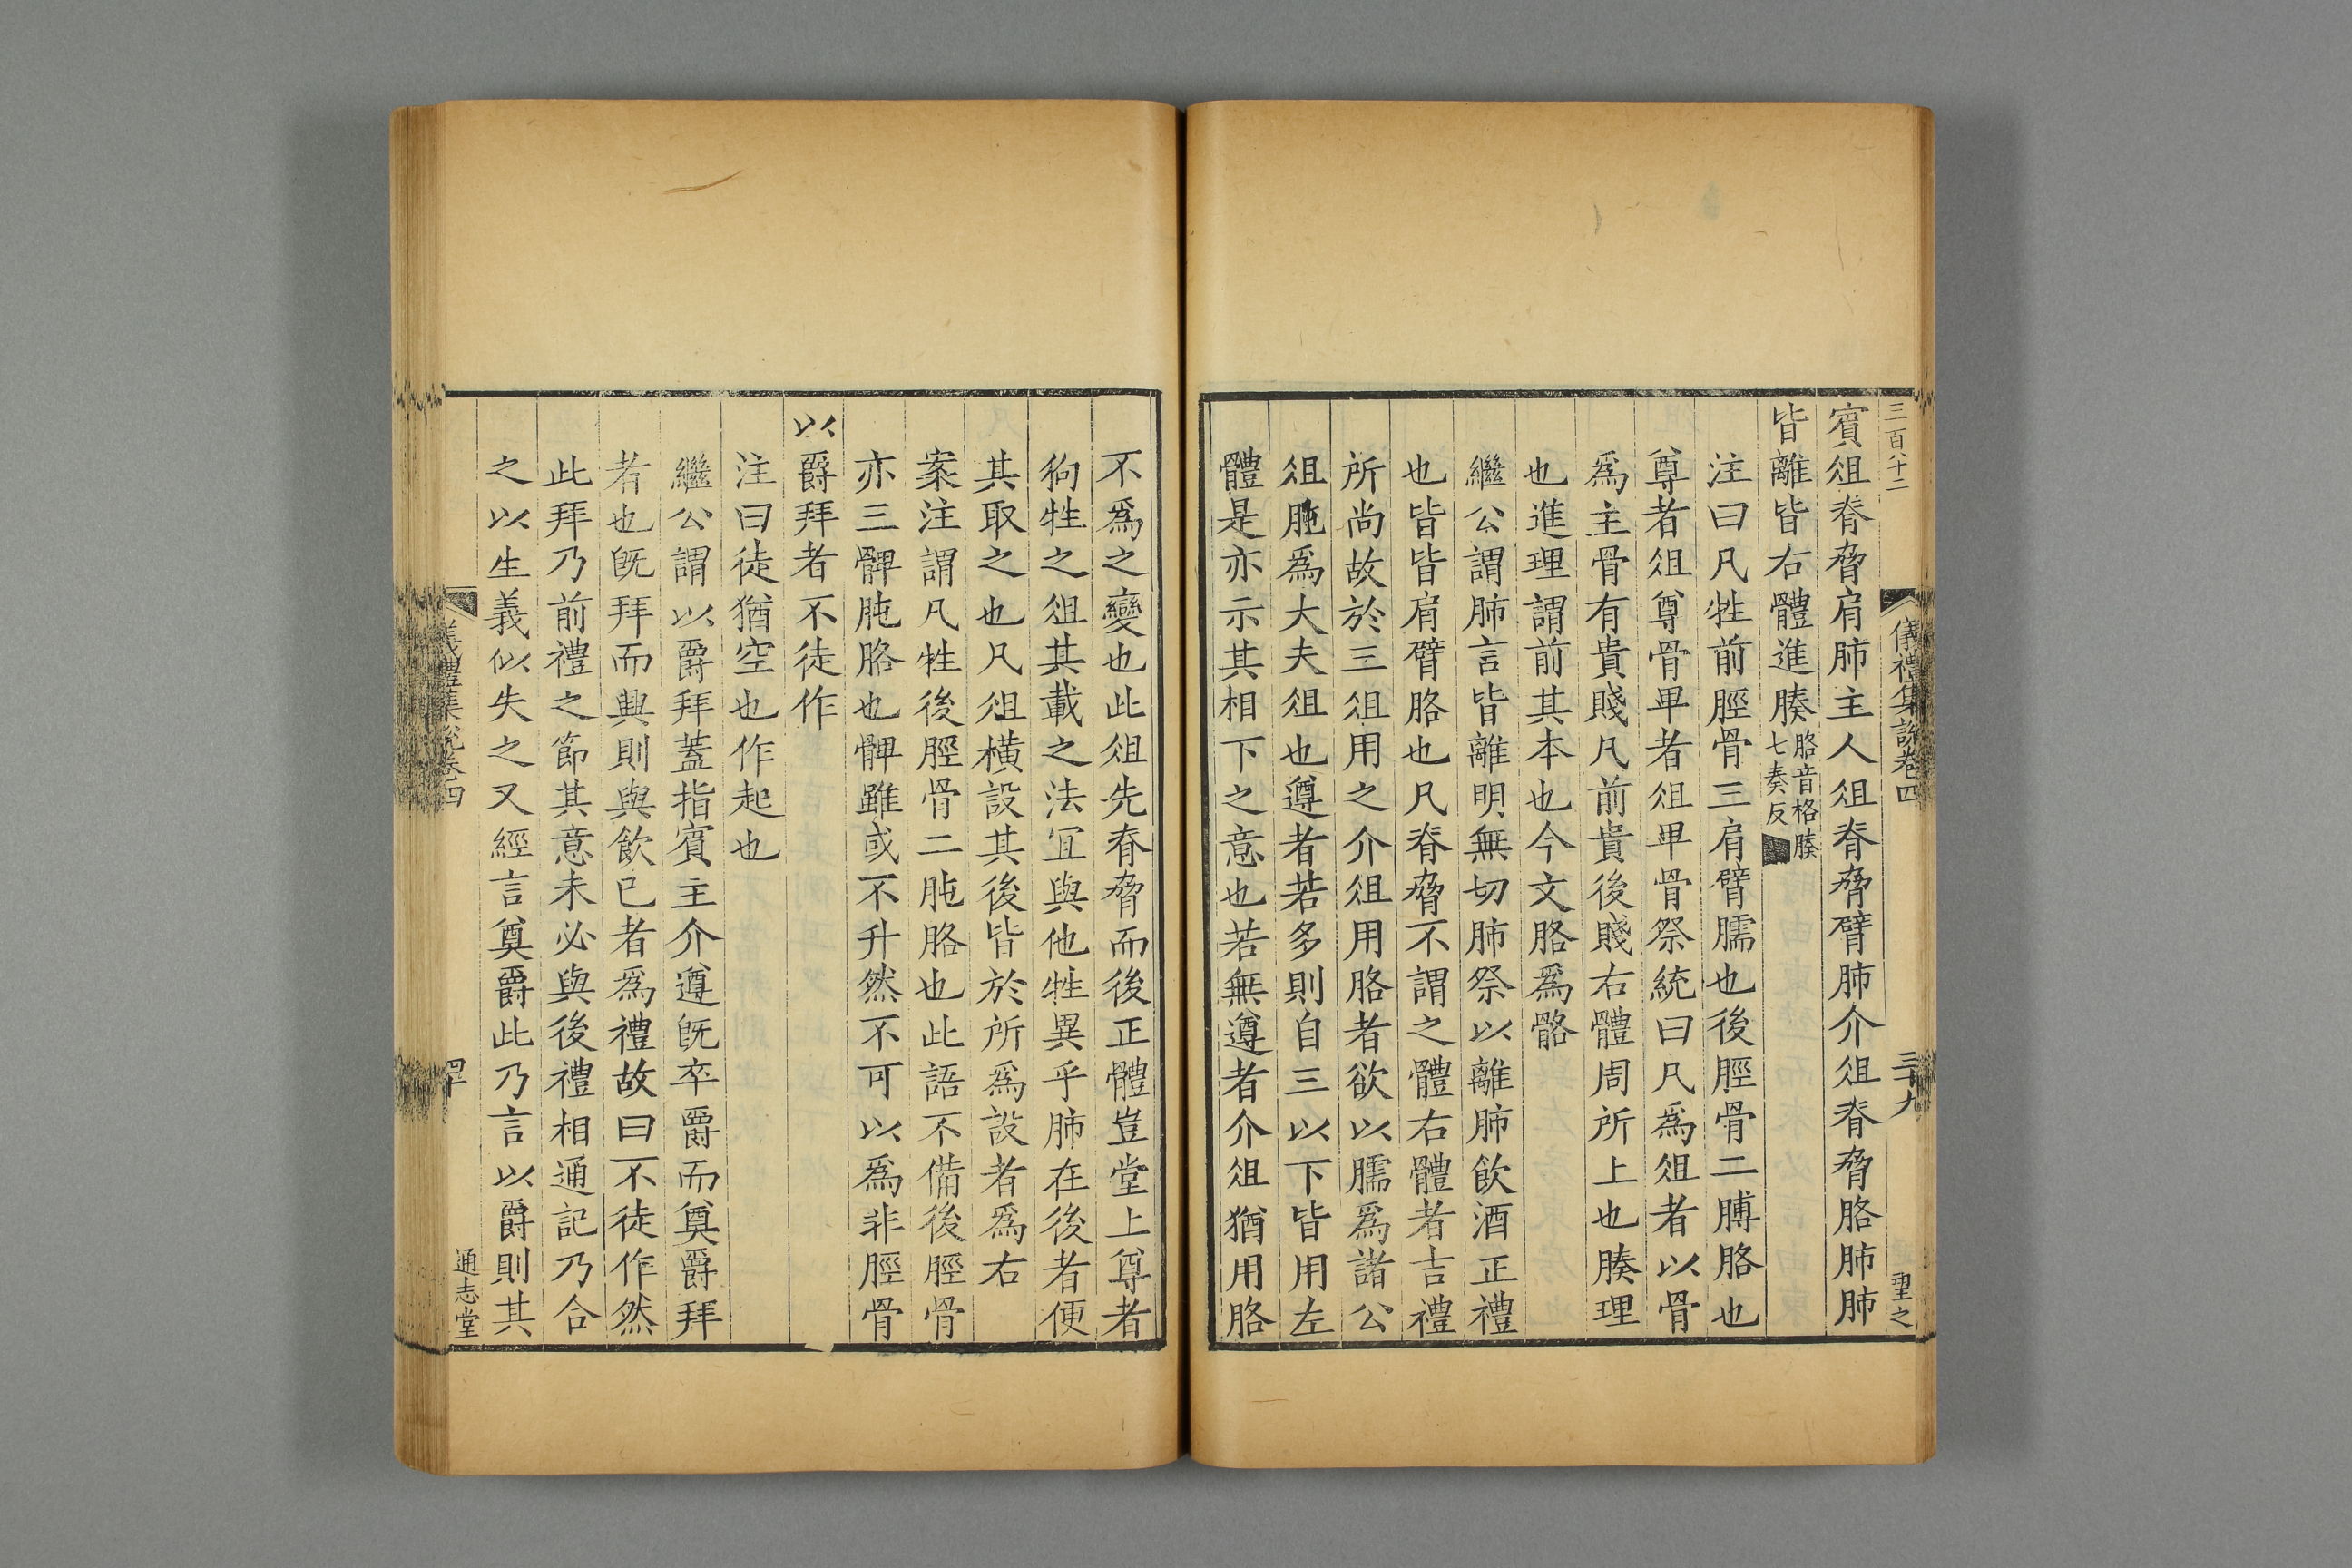 三百八十二
儀禮集說卷四
三十九
賔俎脊脅肩肺主人俎脊脅臂肺介俎脊脅胳肺肺
皆離皆右體進腠胳音格腠七奏反
注曰凡牲前脛骨三肩臂臑也後脛骨二膊胳也
尊者俎尊骨卑者俎卑骨祭統曰凡爲俎者以骨
爲主骨有貴賤凡前貴後賤右體周所上也腠理
也進理謂前其本也今文胳爲骼
繼公謂肺言皆離明無切肺祭以離肺飲酒正禮
也皆皆肩臂胳也凡脊脅不謂之體右體者吉禮
所尚故於三俎用之介俎用胳者欲以臑爲諸公
俎肫爲大夫俎也遵者若多則自三以下皆用左
體是亦示其相下之意也若無遵者介俎猶用胳
不爲之變也此俎先脊脅而後正體豈堂上尊者
狗牲之俎其載之法冝與他牲異乎肺在後者便
其取之也凡俎橫設其後皆於所爲設者爲右
案注謂凡牲後脛骨二肫胳也此語不備後脛骨
亦三髀肫胳也髀雖或不升然不可以爲非脛骨
以爵拜者不徒作
注曰徒猶空也作起也
繼公謂以爵拜蓋指賔主介遵旣卒爵而奠爵拜
者也旣拜而興則與飲已者爲禮故曰不徒作然
此拜乃前禮之節其意未必與後禮相通記乃合
之以生義似失之又經言奠爵此乃言以爵則其
儀禮集說卷四
四十
通志堂